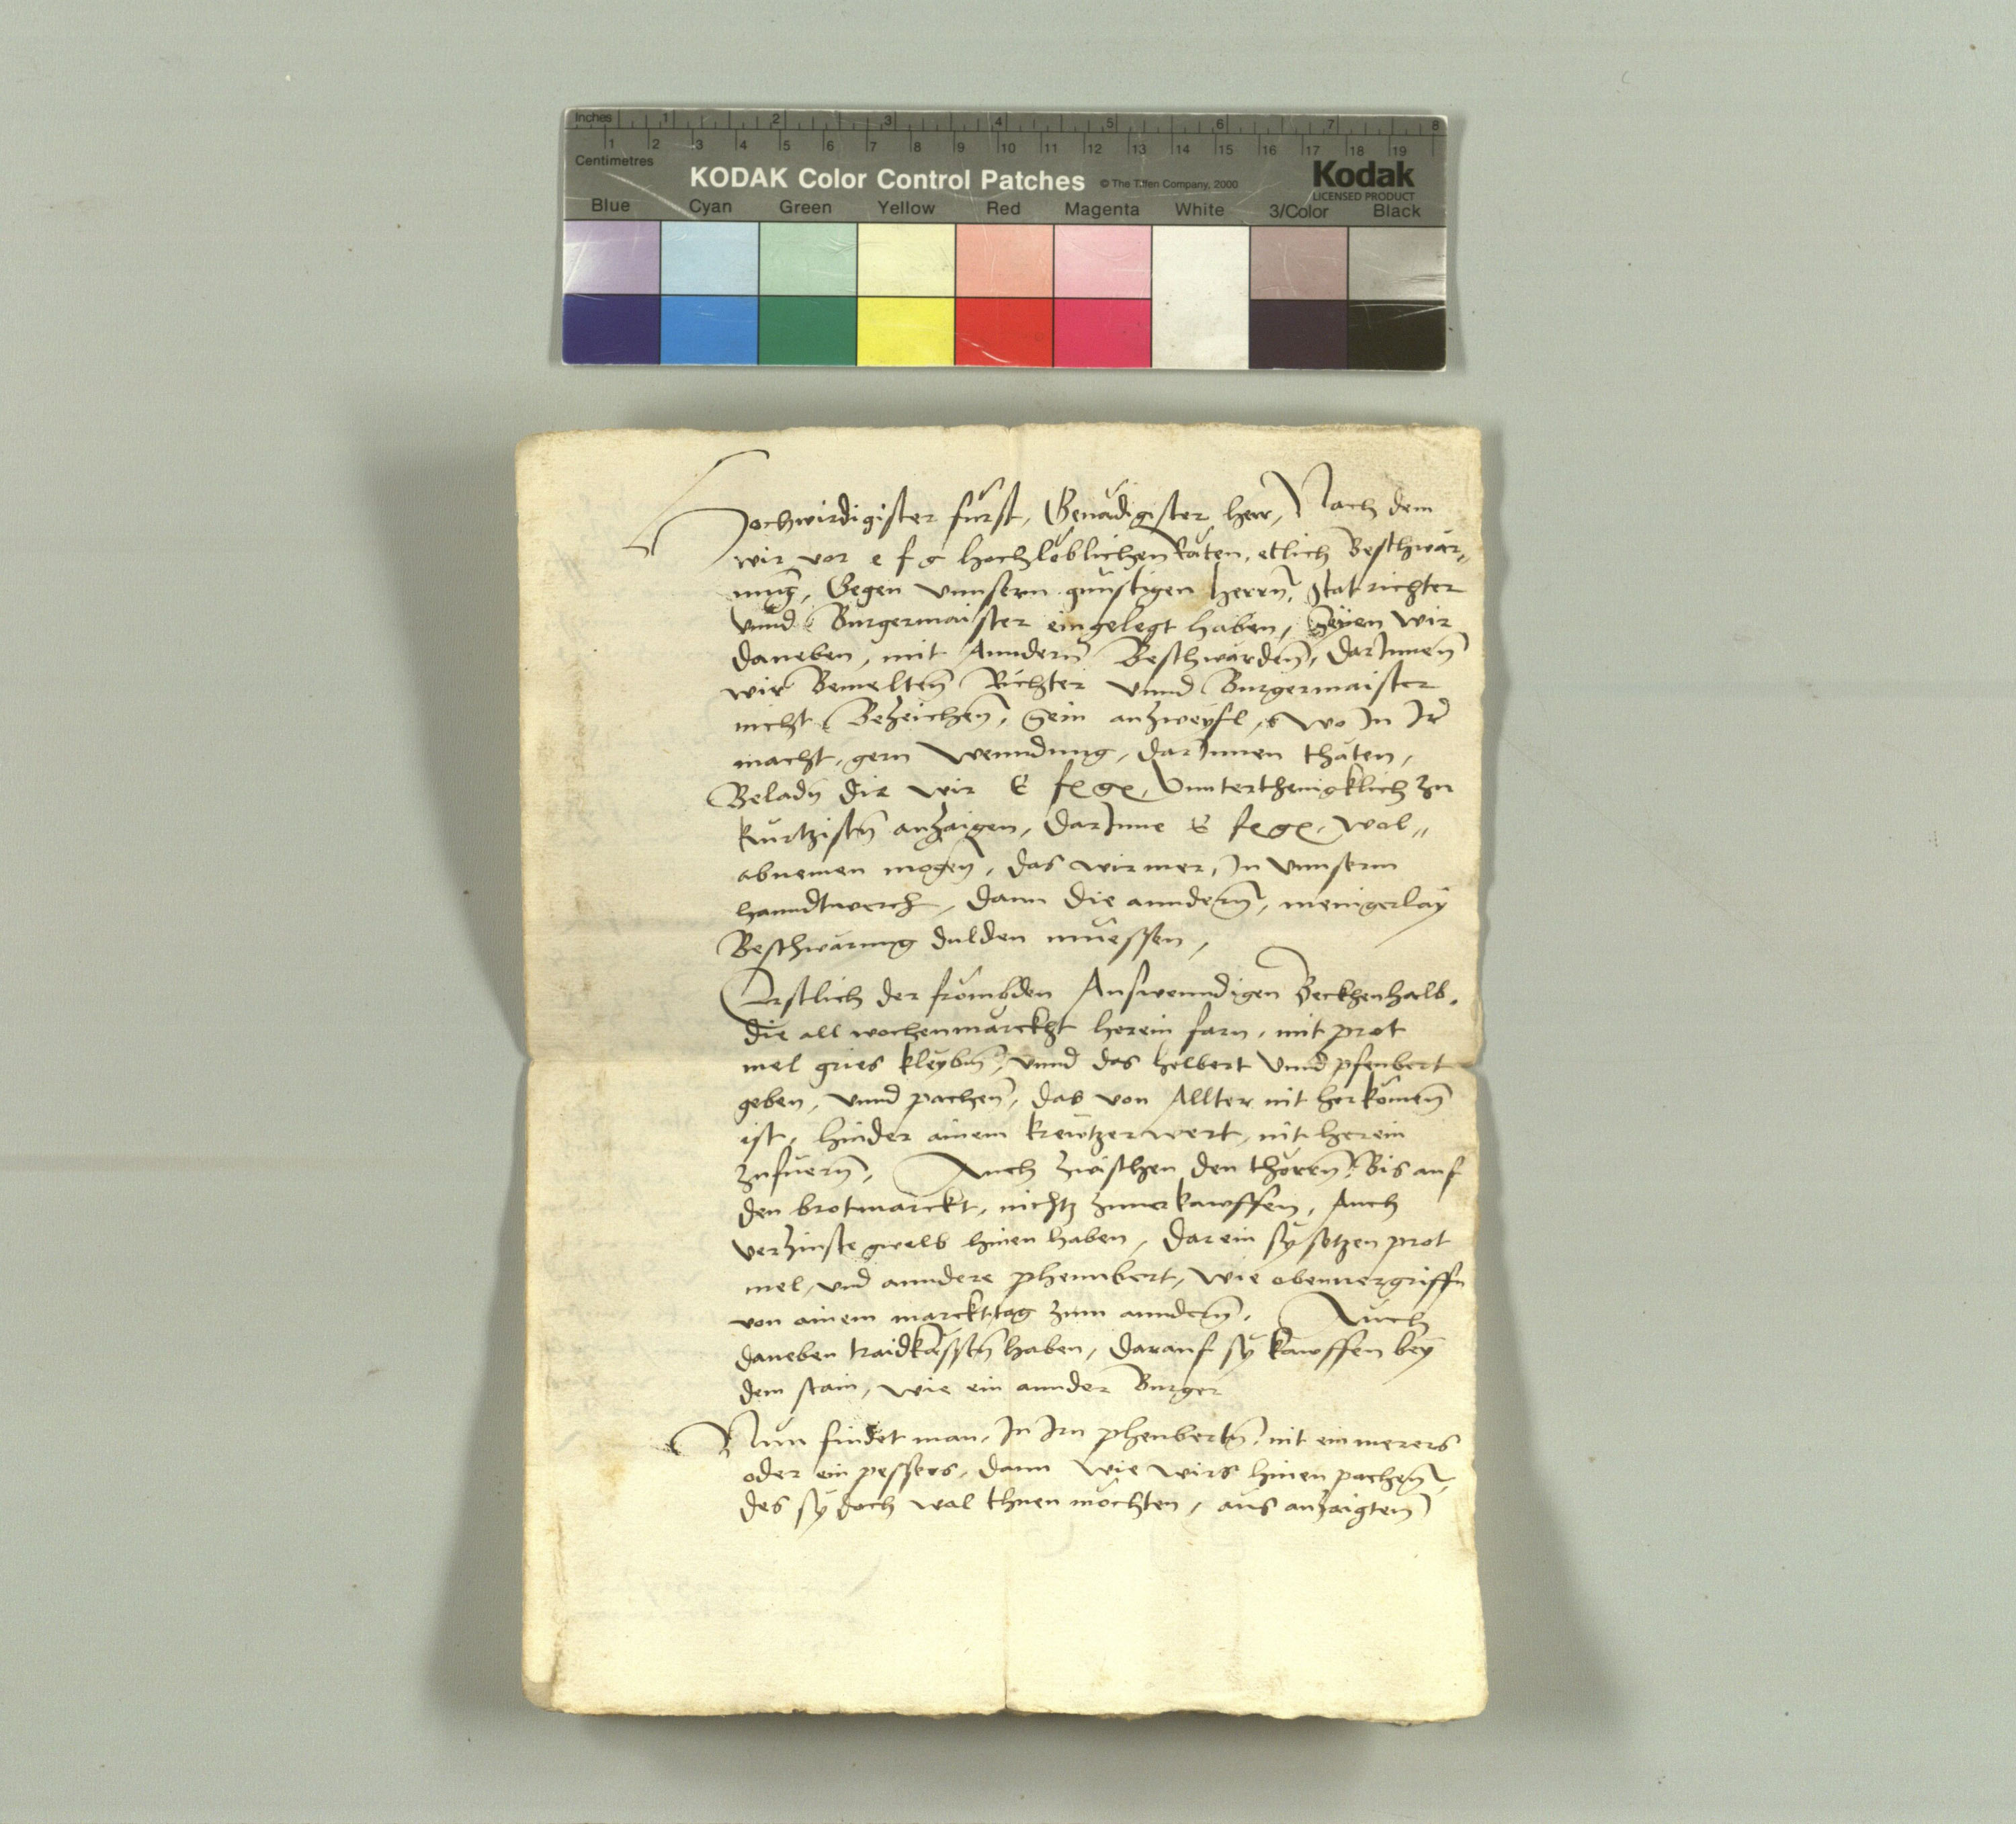 Inches 1 2 3 4 5 6 7 8
1 2 3 4 5 6 7 8 9 10 11 12 13 14 15 16 17 18 19
Centimetres
KODAK Color Control Patches © The Tiffen Company, 2000 Kodak
LICENSED PRODUCT
Blue Cyan Green Yellow Red Magenta White 3/Color Black
Hochwirdigister fürst, Genädigister herr, Nach dem
wir vor e f g hochloblichen Räten, etlich Beschwär„
ung, Gegen vnnsern günstigen herrn, Statrichter
vnnd Burgermaister eingelegt haben, Seyen wir
daneben, mit Anndern Beschwärden, darInnen
wir Bemelten Richter vnnd Burgermaister
nicht Bezeichen, Sein anzweyfl, wo In Ir
macht, gern Wenndung, darInnen thäten,
Beladn die wir E f g, Vnnterthenigklich zu
kurtzistn anzaigen, darInne E f g, wol„
abnemen mogen, das wir mer, In vnnserm
hanndtwerch, dann die anndern, menigerlay
Beschwärung dulden müessen,
Erstlich der frömbden Auswenndigen Beckhenhalb,
die all wochenmärckht herein farn, mit prot
mel gries kleybm, vnnd das helbert vnnd pfenbert
geben, vnnd pachen, das von Allter nit herkomen
ist, hinder ainem kreutzerwert, nit herein
zufüern, Auch zwischen den thörrn, Bis auf
den brotmarckt, nichtz zuuerkawffen, Auch
verzinste gwelb hinen haben, darein sy setzen prot
mel, vnd anndere phennbert, wie obenuergriffn
von ainem marckttag zum anndern, Auch
daneben traidkässtn haben, darauf sy kawffen bey
dem stain, wie ein annder Burger
Nun findet man, In Irn phenbertn, nit ein merers
oder ein pessers, dann wie wirs hinen pachen,
des sy doch wol thuen möchten, aus anzaigten